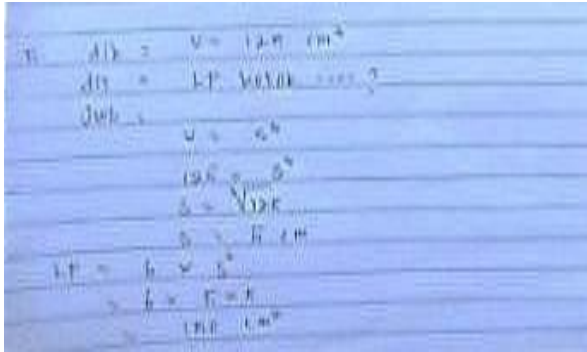 dik = V = 125 cm³
dit = LP. kotak .... ?
Jwb =
V = s³
125 = s³
s = ∛125
s = 5 cm
LP = 6 x s²
= 6 x 5 x 5
= 150 cm²